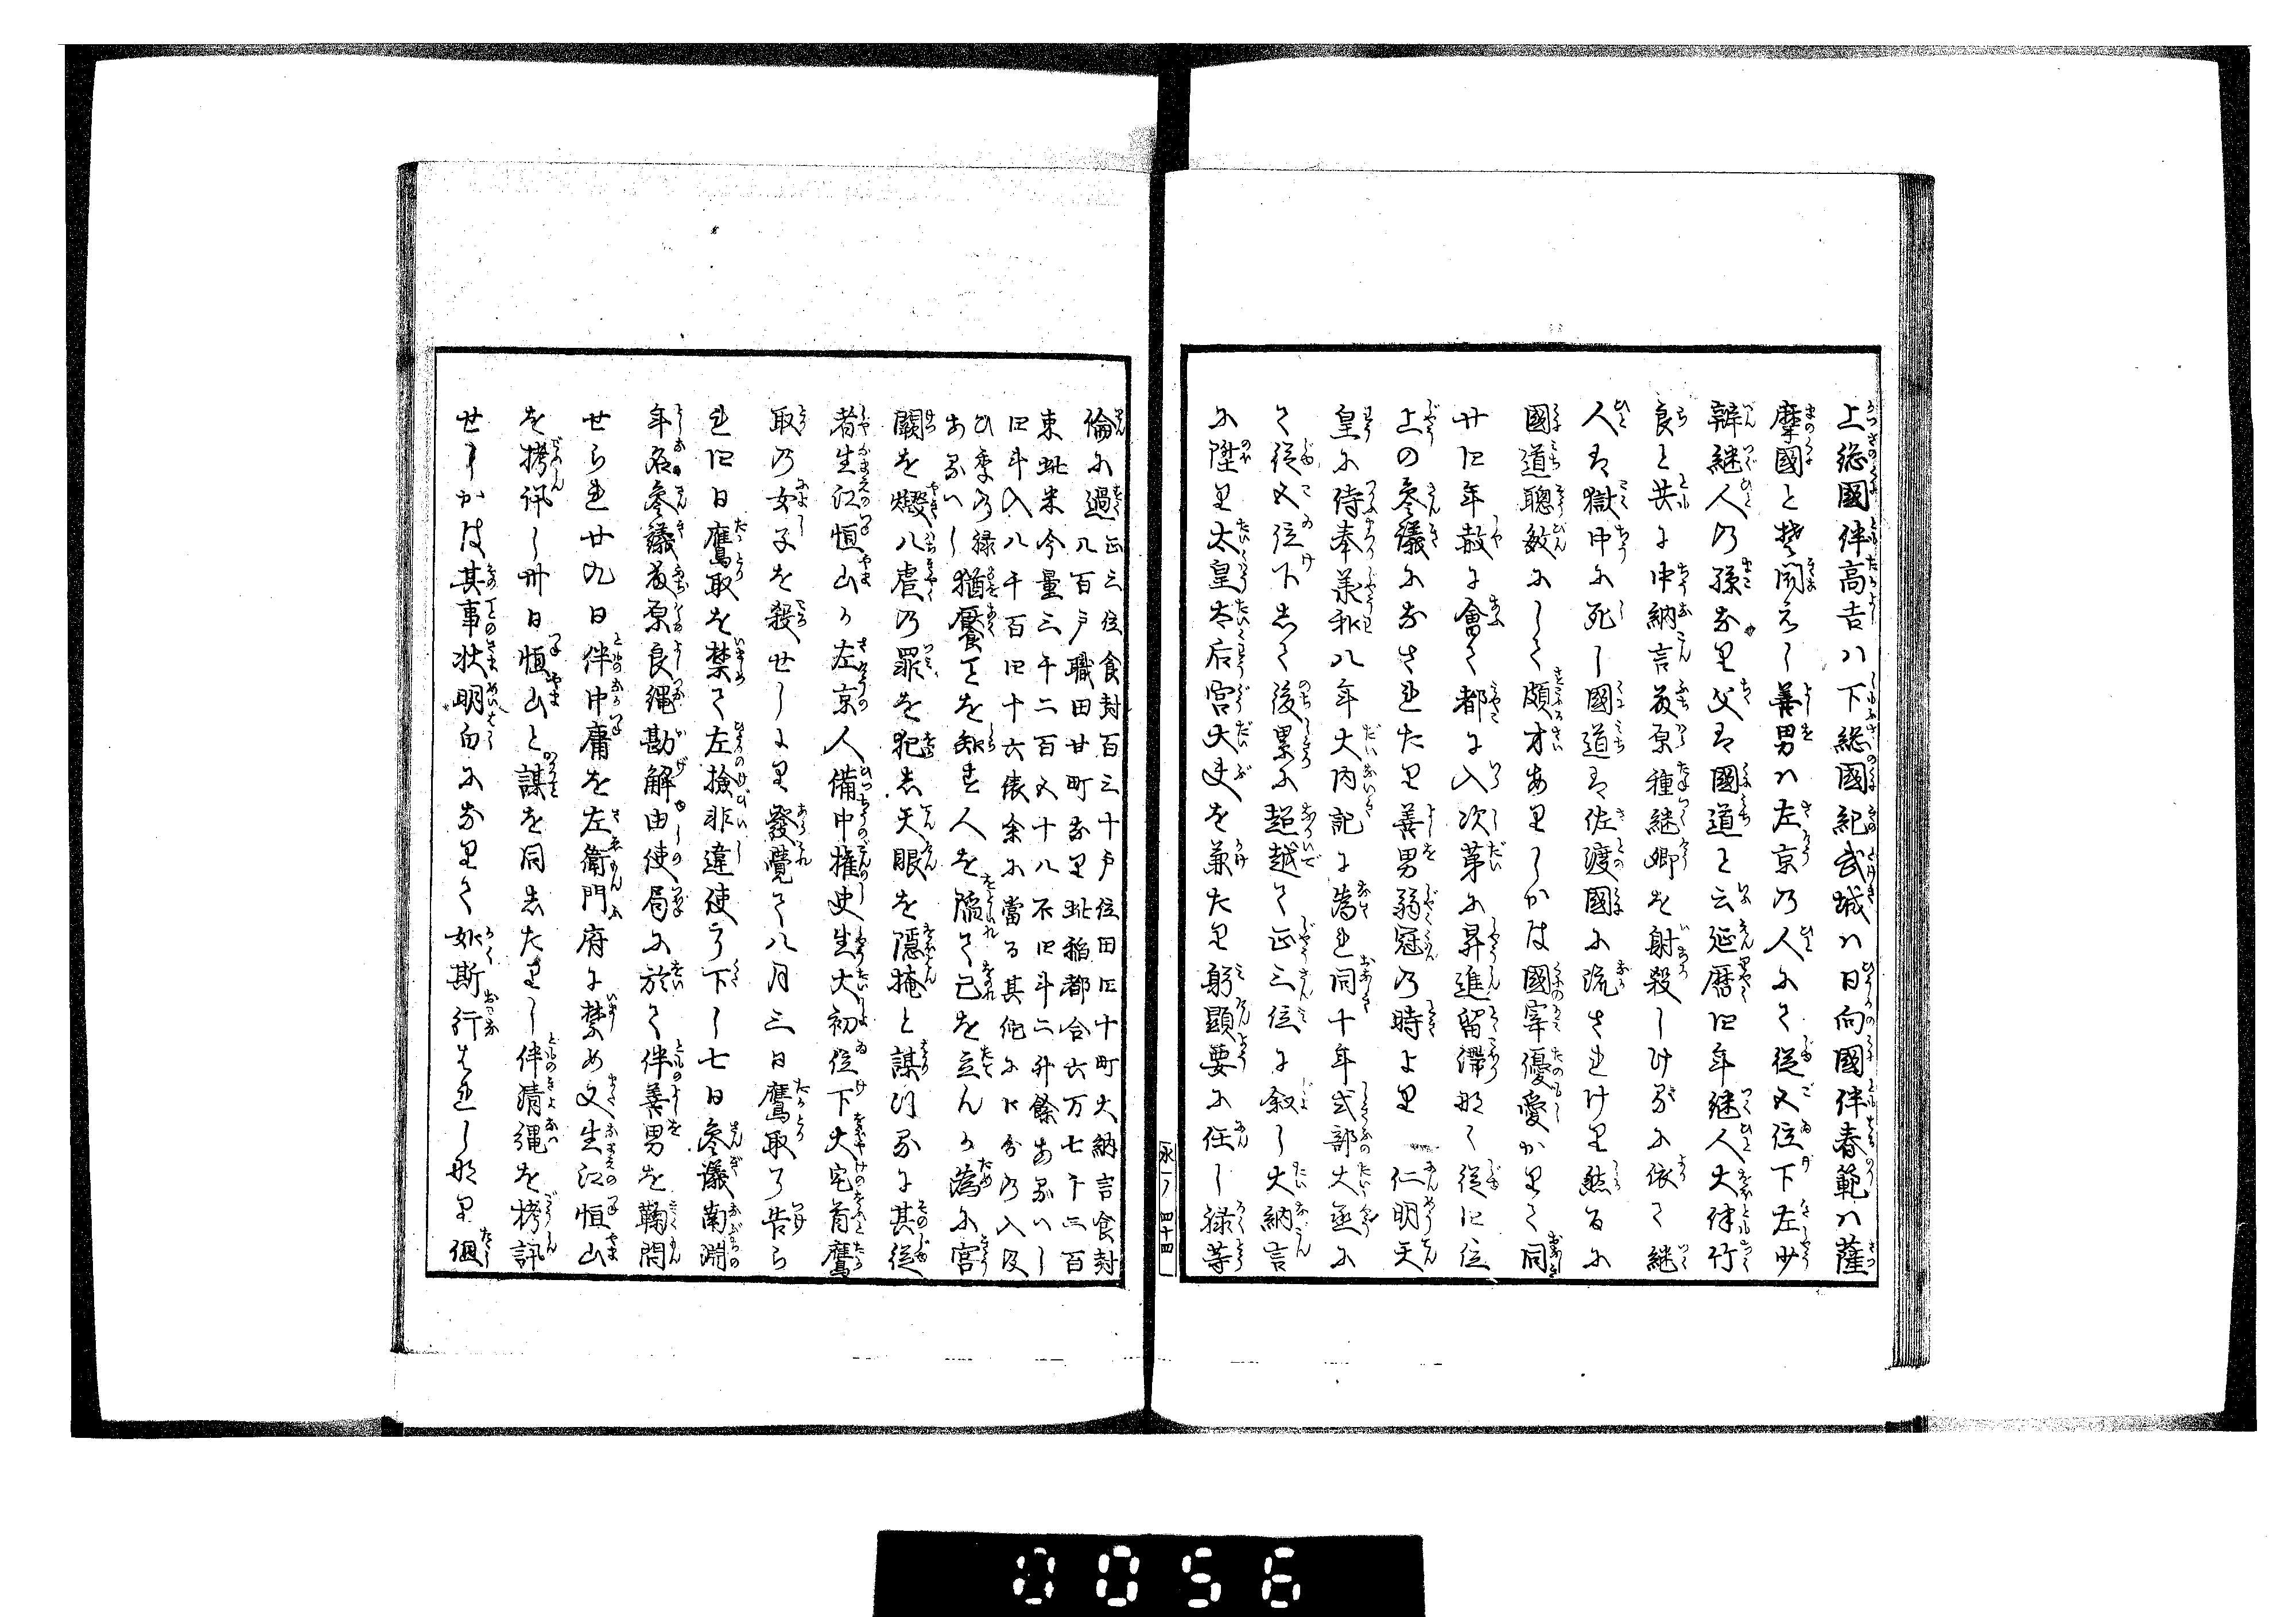 上総國伴高吉ハ下総國紀武城ハ日向國伴春範ハ薩
摩國と楚聞えし善男ハ左京乃人にて従五位下左少
辨継人乃孫なり父は國道と云延暦四年継人大伴竹
良と共に中納言藤原種継卿を射殺しける尓依て継
人は獄中に死し國道は佐渡國に流されけり然るに
國道聰敏にして頗才ありしかば國宰優愛かりて同
廿四年赦に會て都に入次第に昇進留滞なく従四位
上の参議になされたり善男弱冠乃時より 仁明天
皇に侍奉承和八年大内記に為され同十年式部大丞に
て従五位下して後累に超越て正三位に叙し大納言
に陞り太皇太后宮大夫を兼たり躬顕要に任し禄等
永一ノ 四十四
倫に過
正三位食封百三十戸位田四十町大納言食封
八百戸職田廿町なり此稲都合六万七千三百
束此米今量三千二百五十八石四斗二升餘あるハし
四斗入八千百四十六俵余に當る其他に
乃入及
ひ季乃禄
あるハし
猶饜ことを知す人を陥て己を立んか為に宮
闕を燬八虐乃罪を犯し天眼を隠掩と謀けるに其従
者生江恒山か左京人備中権史生大初位下大宅首鷹
取乃女子を殺せしより發覺て八月三日鷹取か告ら
れ四日鷹取を禁て左撿非違使に下し七日参議南淵
年名参議藤原良縄勘解由使局に於て伴善男を鞠問
せられ廿九日伴中庸を左衛門府に禁め又生江恒山
を拷訊し卅日恒山と謀を同したりし伴清縄を拷訊
せしかば其事状明白になりて如斯行はれしなり但
0056